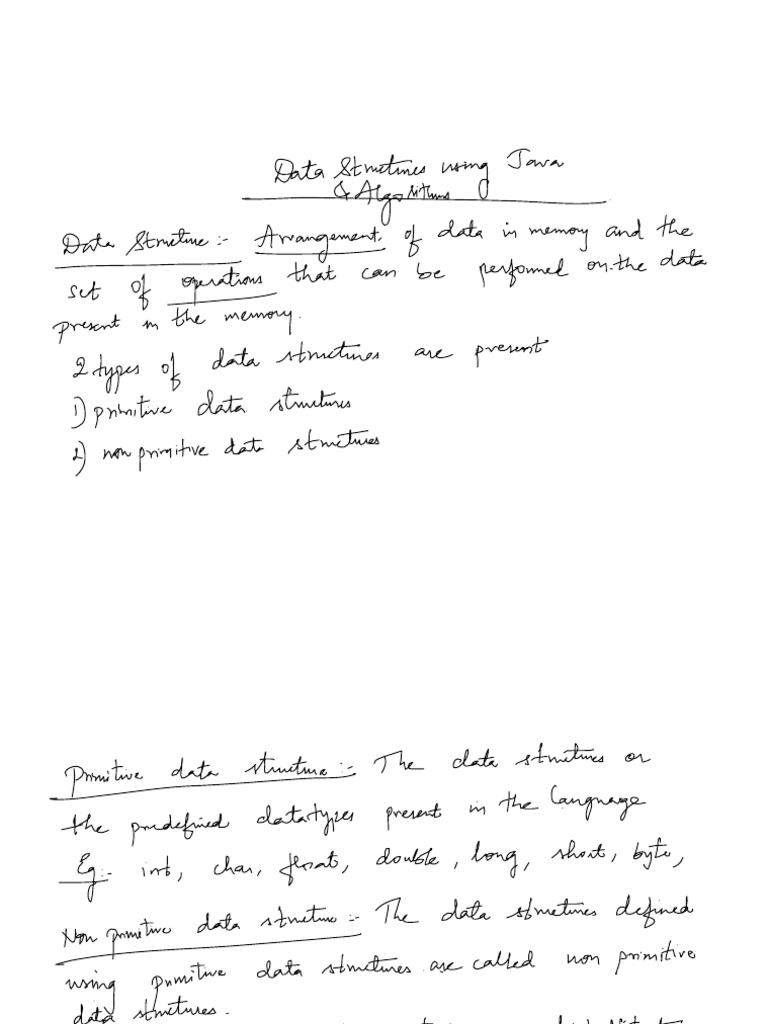 Data Structures using Java
& Algorithms
Data Structure :- Arrangement of data in memory and the
set of operations that can be performed on the data
present in the memory.
2 types of data structures are present
1) primitive data structures
2) non primitive data structures
Primitive data structure :- The data structures or
the predefined datatypes present in the language
Eg:- int, char, float, double, long, short, byte,
Non primitive data structure :- The data structures defined
using primitive data structures are called non primitive
data structures.